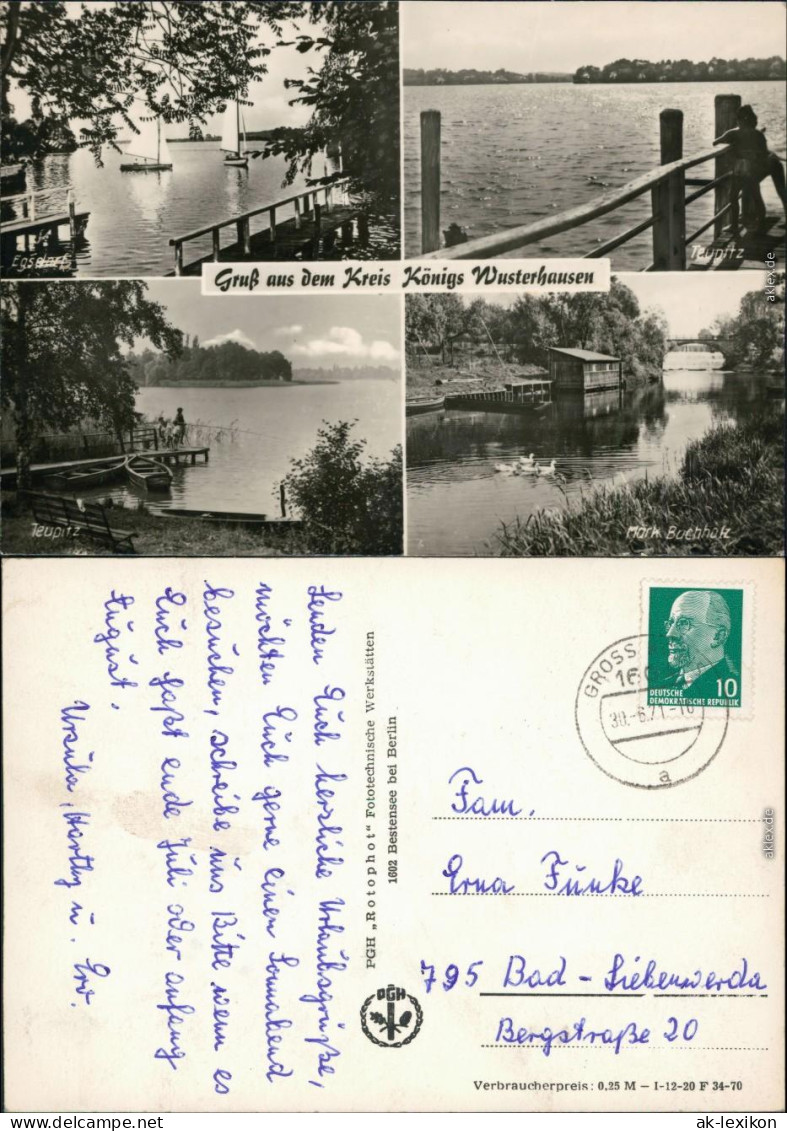 Egsdorf
Teupitz
Gruß aus dem Kreis Königs Wusterhausen
Teupitz
Märk. Buchholz
aklex.de
Senden Euch herzliche Urlaubsgrüße,
möchten Euch gerne einen Sonnabend
besuchen, schreibe uns Bitte wenn es
Euch paßt ende Juli oder anfang
August.
Ursula, u.
PGH „Rotophot“ Fototechnische Werkstätten
1602 Bestensee bei Berlin
PGH
GROSS
30.-6.71.-
a
10
DEUTSCHE
DEMOKRATISCHE REPUBLIK
Fam.
Erna Funke
795 Bad-Liebenwerda
Bergstraße 20
Verbraucherpreis: 0,25 M — I-12-20 F 34-70
aklex.de
ak-lexikon
www.delcampe.net